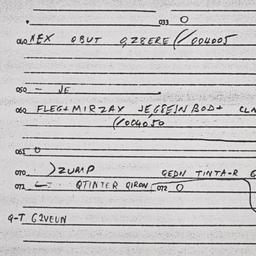 033 O
040 KEX OBUT 9,28ERE (/004005
050 - JE
060 FLEG+ MIRZAY JEGSEJN BOD+ CLA
(/004050
061 O
070 )ZUMP GEDN TINTA-R G
071 QTINTER QIRON 072 O
9-T G2VEUN